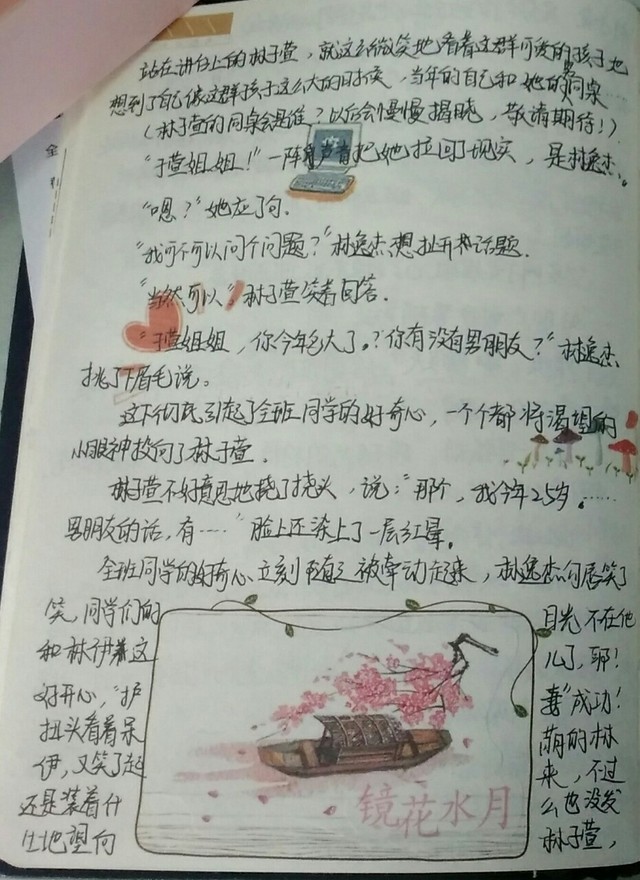 站在讲台上的林子萱，就这么微笑地看着这群可爱的孩子也
想到了自己像这群孩子这么大的时候，当年的自己和她的同桌……
（林子萱的同桌会是谁？以后会慢慢揭晓，敬请期待！）
“子萱姐姐！”一阵声音把她拉回了现实，是林逸杰。
“嗯？”她应了句.
“我可不可以问个问题？”林逸杰想扯开和话题.
“当然可以”，林子萱笑着回答.
“子萱姐姐，你今年多大了。？你有没有男朋友？”林逸杰
挑了下眉毛说。
这下彻底引起了全班同学的好奇心，一个个都将渴望的
小眼神投向了林子萱.
林子萱不好意思地挠了挠头，说：“那个，我今年25岁。……
男朋友的话，有……”脸上还染上了一层红晕。
全班同学的好奇心立刻又被牵动起来，林逸杰勾唇笑了
笑，同学们的目光不在他
和林伊着这儿了，耶！
好开心，“护妻”成功！
扭头看着呆萌的林
伊，又笑了起来，不过
还是装着什么也没发
生地望向林子萱，
镜花水月
全